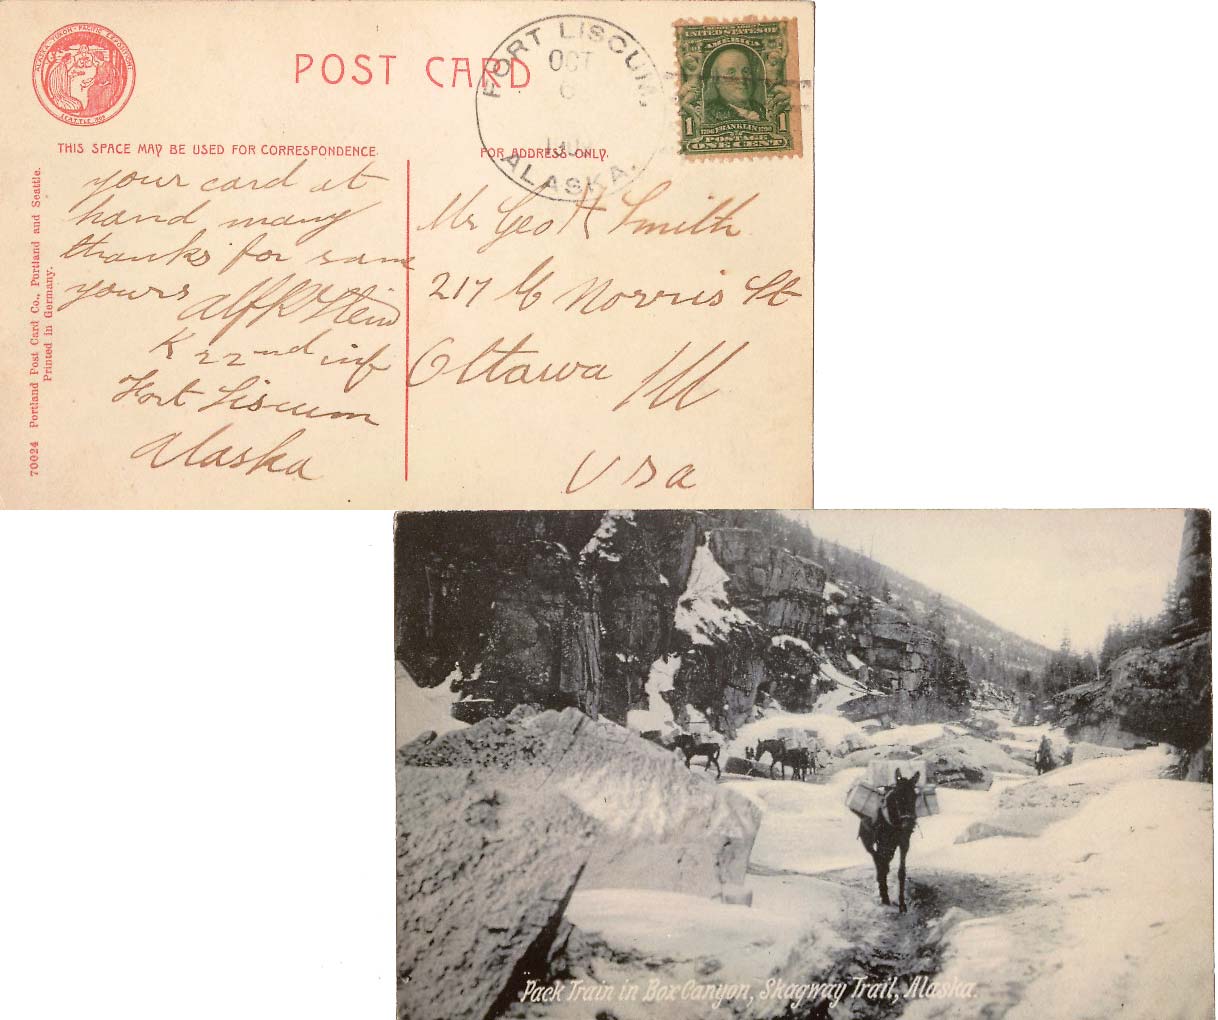 ALASKA-YUKON-PACIFIC EXPOSITION
SEATTLE
POST CARD
FORT LISCUM,
OCT
6
ALASKA.
SERIES 1902
UNITED STATES OF
AMERICA
1
1706 FRANKLIN 1790
1
POSTAGE
ONE CENT
THIS SPACE MAY BE USED FOR CORRESPONDENCE.
FOR ADDRESS ONLY.
70024 Portland Post Card Co., Portland and Seattle.
Printed in Germany.
your card at
hand many
thanks for same
yours Alf R Stein
K 22nd inf
Fort Liscum
Alaska
Mr Geo H Smith
217 E Norris St
Ottawa Ill
USa
Pack Train in Box Canyon, Skagway Trail, Alaska.